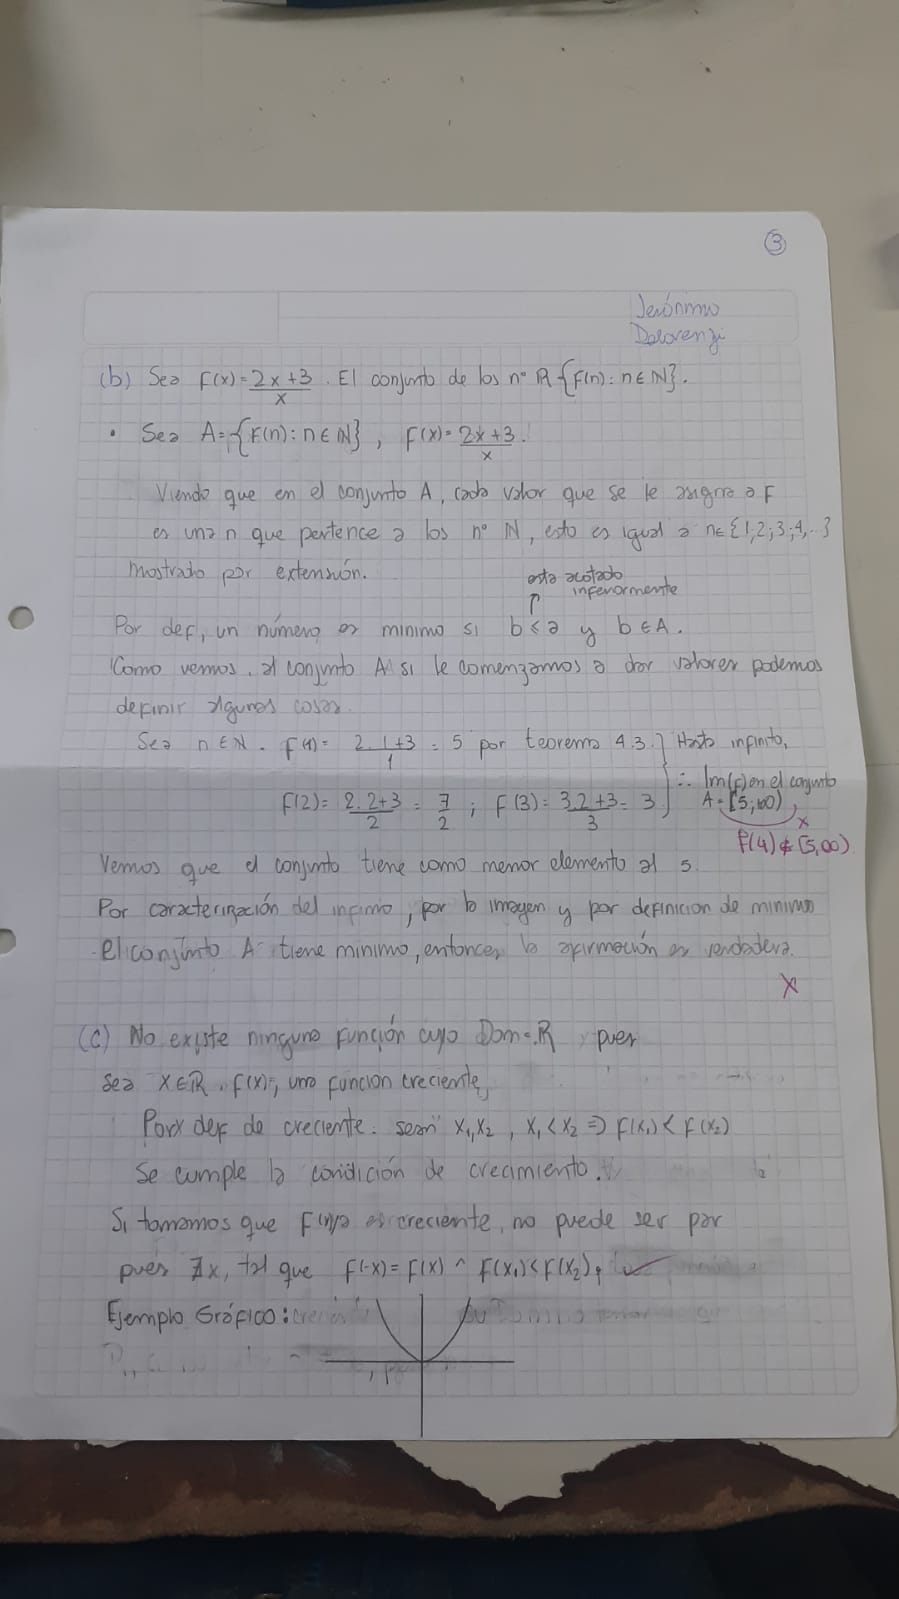 3
Jerónimo
Dalovenzi
(b) Sea F(x)=2x+3/x. El conjunto de los n° R {F(n): n∈N}.
• Sea A={F(n): n∈N}, F(x)=2x+3/x.
Viendo que en el conjunto A, cada valor que se le asigna a F
es una n que pertence a los n° N, esto es igual a n∈{1;2;3;4,...}
mostrado por extensión.
esta acotado
inferiormente
↑
Por def, un número es minimo si b<a y b∈A.
Como vemos, al conjunto A si le comenzamos a dar valores podemos
definir algunas cosas.
Sea n∈N. F(1)= 2.1+3/1 = 5 por teorema 4.3. } Hasta infinito,
F(2)= 2.2+3/2 = 7/2 ; F(3)= 3.2+3/3 = 3 } ∴ Im(F) en el conjunto
A=[5;∞)
x
F(4)∉[5,∞)
Vemos que el conjunto tiene como menor elemento al 5.
Por caracterización del infimo, por la imagen y por definicion de minimo
El conjunto A tiene minimo, entonces la afirmación es verdadera.
X
(c) No existe ninguna función cuyo Dom=R pues
sea x∈R, f(x), una funcion creciente,
Por def de creciente: sean x₁,x₂, x₁<x₂ ⇒ f(x₁)<f(x₂)
Se cumple la condición de crecimiento.
Si tomamos que es creciente, no puede ser par
pues ∄x, tal que f(-x)=f(x) ^ f(x₁)<f(x₂),
Ejemplo Gráfico: